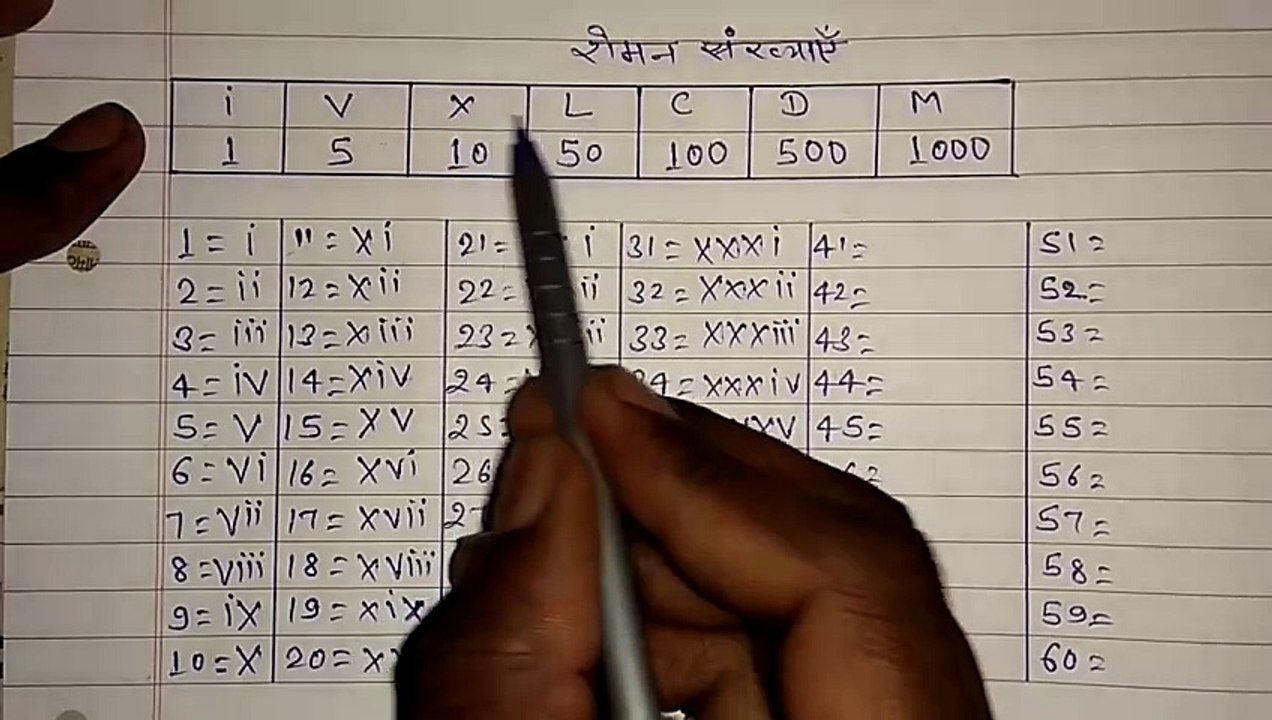 रोमन संख्याएँ
i V X L C D M
1 5 10 50 100 500 1000
1 = i 11 = Xi 21 = i 31 = XXXi 41 = 51 =
2 = ii 12 = Xii 22 = ii 32 = XXXii 42 = 52 =
3 = iii 13 = Xiii 23 = 33 = XXXiii 43 = 53 =
4 = iV 14 = XiV 24 = = XXXiV 44 = 54 =
5 = V 15 = XV 25 45 = 55 =
6 = Vi 16 = XVi 26 56 =
7 = Vii 17 = XVii 57 =
8 = Viii 18 = XViii 58 =
9 = iX 19 = XiX 59 =
10 = X 20 = 60 =